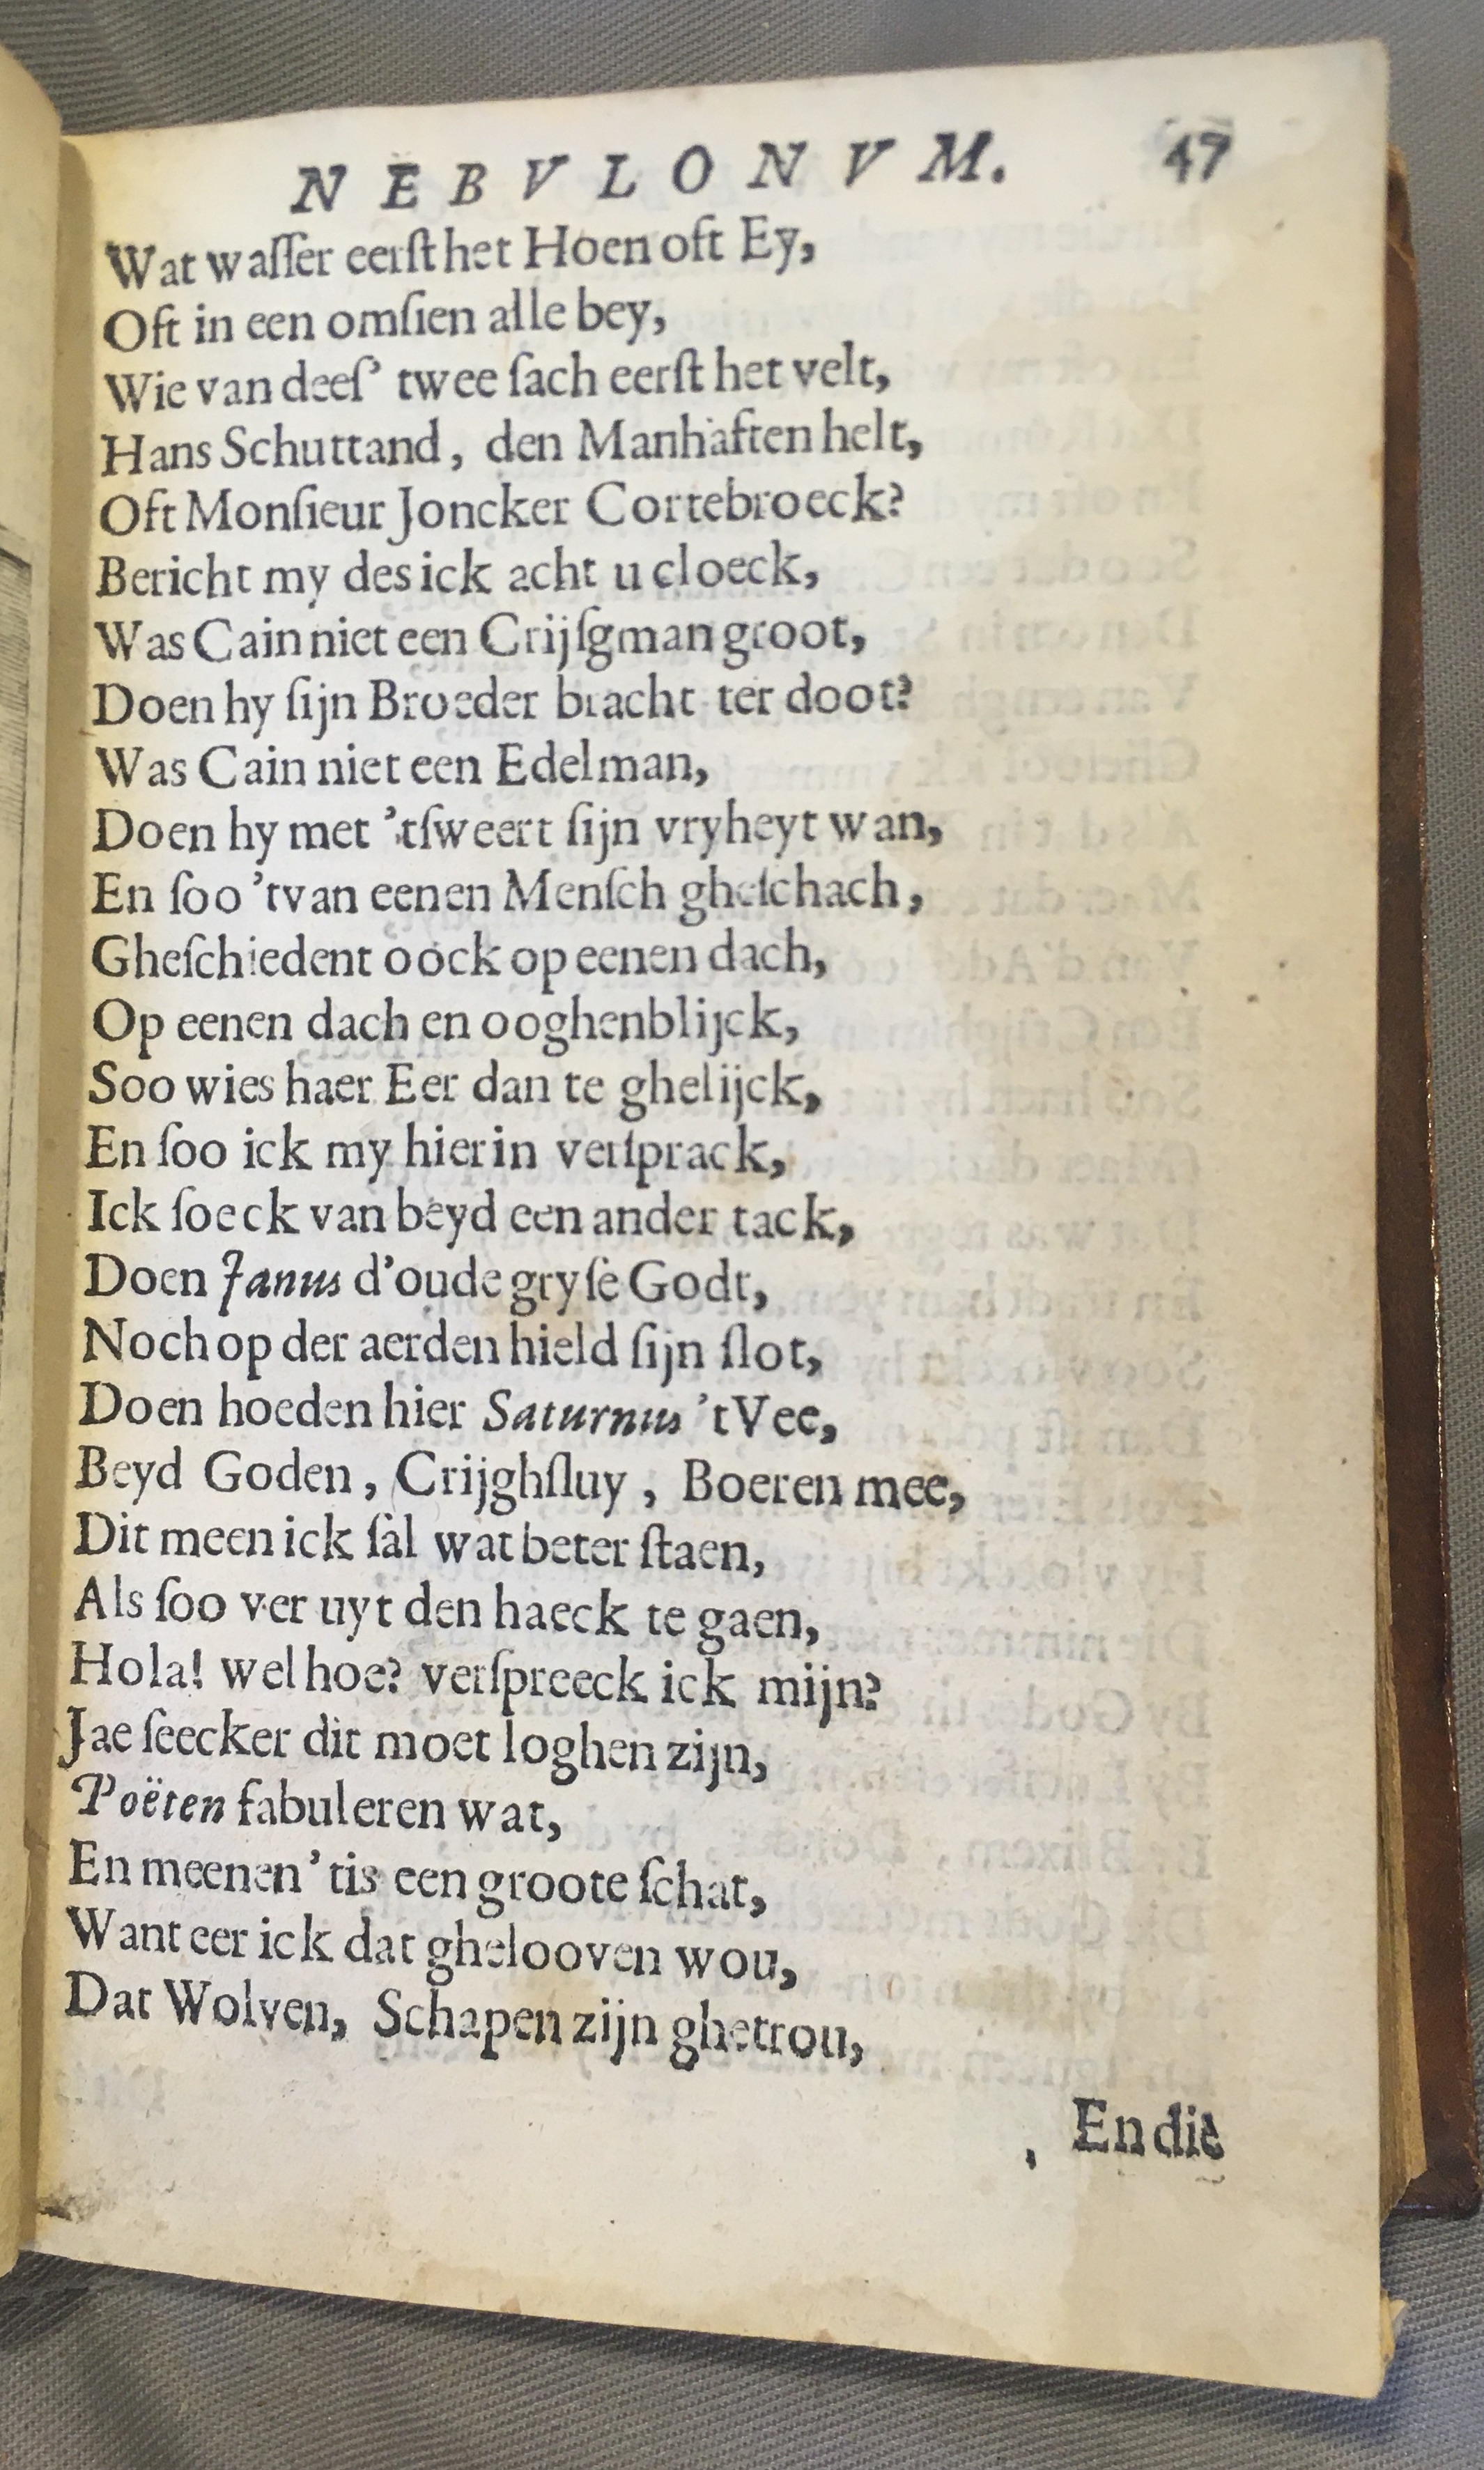 NEBVLONVM. 47
Wat waſſer eerſt het Hoen oft Ey,
Oft in een omſien alle bey,
Wie van deeſ' twee ſach eerſt het velt,
Hans Schuttand, den Manhaften helt,
Oft Monſieur Joncker Cortebroeck?
Bericht my des ick acht u cloeck,
Was Cain niet een Crijſgman groot,
Doen hy ſijn Broeder bracht ter doot?
Was Cain niet een Edelman,
Doen hy met 'tſweert ſijn vryheyt wan,
En ſoo 'tvan eenen Menſch gheſchach,
Gheſchiedent oock op eenen dach,
Op eenen dach en ooghenblijck,
Soo wies haer Eer dan te ghelijck,
En ſoo ick my hierin verſprack,
Ick ſoeck van beyd een ander tack,
Doen Janus d'oude gryſe Godt,
Noch op der aerden hield ſijn ſlot,
Doen hoeden hier Saturnus 't Vee,
Beyd Goden, Crijghſluy, Boeren mee,
Dit meen ick ſal wat beter ſtaen,
Als ſoo ver uyt den haeck te gaen,
Hola! wel hoe? verſpreeck ick mijn?
Jae ſeecker dit moet loghen zijn,
Poëten fabuleren wat,
En meenen 'tis een groote ſchat,
Want eer ick dat ghelooven wou,
Dat Wolven, Schapen zijn ghetrou,
En die